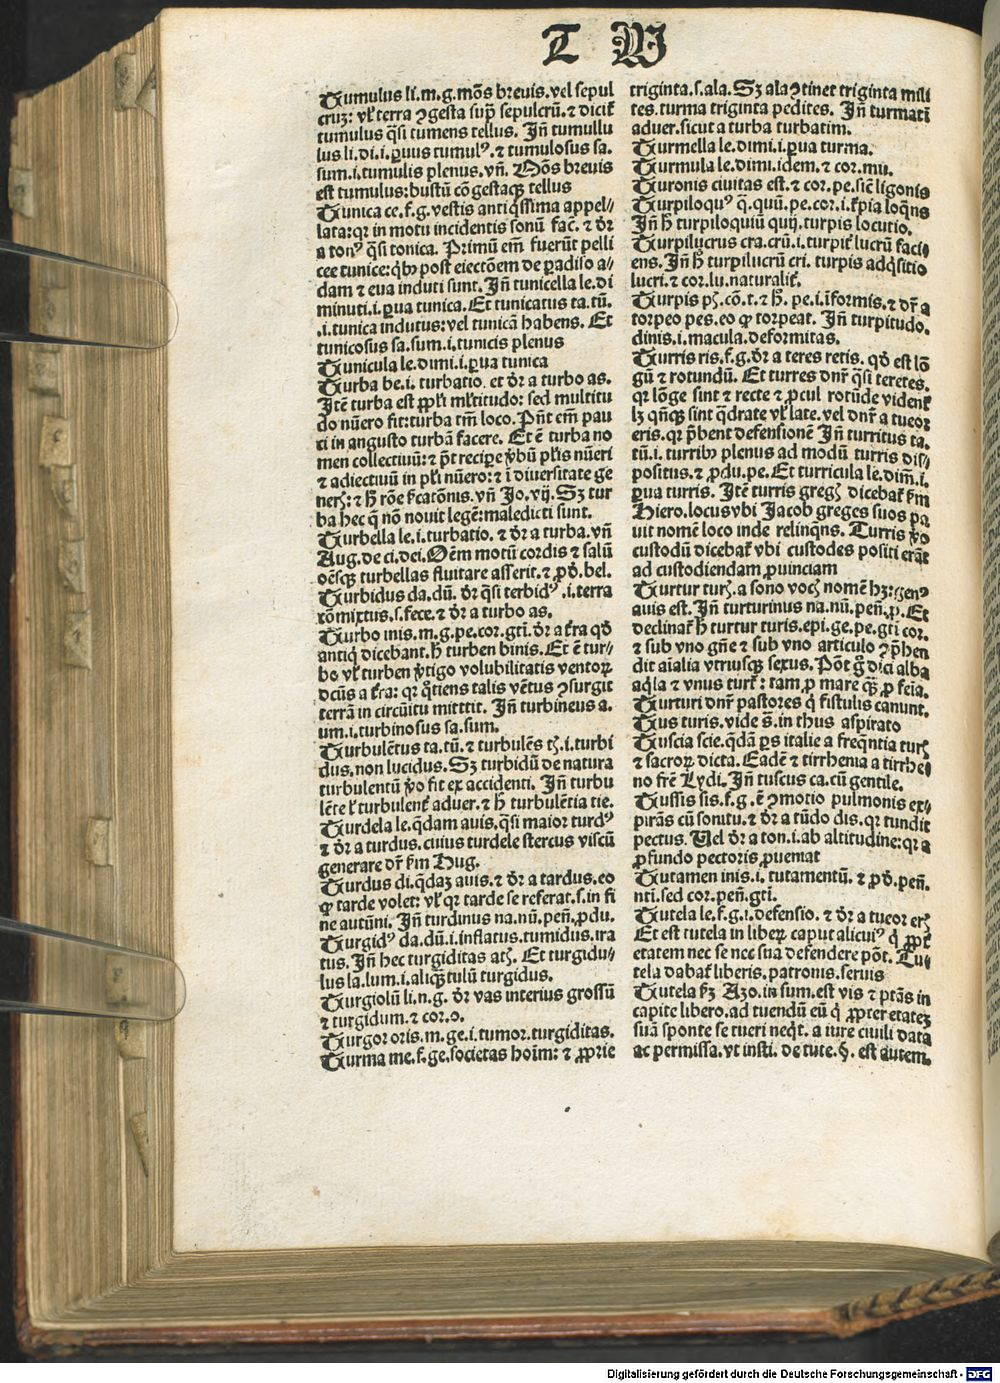 T W
Tumulus li.m.g.mōs breuis.vel sepul
crūꝫ: vl' terra ꝯgesta sup̄ sepulcrū.⁊ dicit̃
tumulus q̄si tumens tellus. Jn̄ tumullu
lus li.di.i.ꝑuus tumulꝰ.⁊ tumulosus sa.
sum.i.tumulis plenus.vn̄. Mōs breuis
est tumulus:bustū cōgestaqꝫ tellus
Tunica ce.f.g.vestis antiq̄ssima appel⸗
lata:qr in motu incidentis sonū fac̄.⁊ dr̄
a tonꝰ q̄si tonica. Primū em̄ fuerūt pelli
cee tunice:qb' post eiectōem de ꝑadiso a⸗
dam ⁊ eua induti sunt. Jn̄ tunicella le.di
minuti.i.ꝑua tunica. Et tunicatus ta.tū.
.i.tunica indutus:vel tunicā habens. Et
tunicosus sa.sum.i.tunicis plenus
Tunicula le.dimi.i.ꝑua tunica
Turba be.i. turbatio. et dr̄ a turbo as.
Jtē turba est ppl'i ml'titudo: sed multitu
do nūero fit:turba tm̄ loco. Pn̄t em̄ pau
ci in angusto turbā facere. Et ē turba no
men collectiuū:⁊ p̄t recipe v̓bū pl'is nūeri
⁊ adiectiuū in pl'i nūero:⁊ ī diuersitate ge
neꝝ:⁊ h̄ rōe ſ'catōnis.vn̄ Jo.vij. Sꝫ tur
ba hec q̄ nō nouit legē:maledicti sunt.
Turbella le.i.turbatio.⁊ dr̄ a turba.vn̄
Aug.de ci.dei. Oēm motū cordis ⁊ salū
oēsqꝫ turbellas fluitare asserit.⁊ ꝓd̄.bel.
Turbidus da.dū. dr̄ q̄si terbidꝰ .i.terra
cōmixtus.s.fece.⁊ dr̄ a turbo as.
Turbo inis.m.g.pe.cor.gti. dr̄ a t̄ra qd̄
antiq̄ dicebant.h̄ turben binis. Et ē tur⸗
bo vl' turben v̓tigo volubilitatis ventoꝝ
dcūs a t̄ra: qr q̄tiens talis vētus ꝯsurgit
terrā in circūitu mitttit. Jn̄ turbineus a.
um.i.turbinosus sa.sum.
Turbulētus ta.tū.⁊ turbulēs tꝭ.i.turbi
dus.non lucidus. Sꝫ turbidū de natura
turbulentū v̓o fit ex accidenti. Jn̄ turbu
lēte l' turbulent̃ aduer.⁊ h̄ turbulētia tie.
Turdela le.q̄dam auis.q̄si maior turdꝰ
⁊ dr̄ a turdus.cuius turdele stercus viscū
generare dr̄ ſm Hug.
Turdus di.q̄daꝫ auis.⁊ dr̄ a tardus.eo
ꝙ tarde volet: vl' qr tarde se referat.s.in fi
ne autūni. Jn̄ turdinus na.nū.pen̄.ꝓdu.
Turgidꝰ da.dū.i.inflatus.tumidus.ira
tus. Jn̄ hec turgiditas atꝭ. Et turgidu⸗
lus la.lum.i.aliqꝫtulū turgidus.
Turgiolū li.n.g. dr̄ vas interius grossū
⁊ turgidum.⁊ cor.o.
Turgor oris.m.ge.i.tumor.turgiditas.
Turma me.f.ge.societas hoīm: ⁊ ꝓprie
triginta.s.ala. Sꝫ ala ꝯtinet triginta mili
tes.turma triginta pedites. Jn̄ turmatī
aduer.sicut a turba turbatim.
Turmella le.dimi.i.ꝑua turma.
Turmula le.dimi.idem.⁊ cor.mu.
Turonis ciuitas est.⁊ cor.pe.siē ligonis
Turpiloquꝰ q̄.quū.pe.cor.i.t̃pia loq̄ns
Jn̄ h̄ turpiloquiū quij.turpis locutio.
Turpilucrus cra.crū.i.turpit̃ lucrū faci⸗
ens. Jn̄ h̄ turpilucrū cri. turpis adq̄sitio
lucri.⁊ cor.lu.naturalit̃.
Turpis pꝭ.cō.t.⁊ h̄. pe.i.īformis.⁊ dr̄ a
torpeo pes.eo ꝙ torpeat. Jn̄ turpitudo.
dinis.i.macula.deformitas.
Turris ris.f.g.dr̄ a teres retis. qd̄ est lō
gū ⁊ rotundū. Et turres dnr̄ q̄si teretes.
qr lōge sint ⁊ recte ⁊ ꝓcul rotūde vident̃
lꝫ qn̄qꝫ sint q̄drate vl' late.vel dnr̄ a tueoꝛ
eris.qr p̄bent defensionē Jn̄ turritus ta.
tū.i.turrib' plenus ad modū turris dis⸗
positus.⁊ ꝓdu.pe. Et turricula le.dim̄.i.
ꝑua turris. Jtē turris gregꝭ dicebat̃ ſm
Hiero.locus vbi Jacob greges suos pa
uit nomē loco inde relinq̄ns. Turris v̓o
custodū dicebat̃ vbi custodes positi erāt
ad custodiendam ꝓuinciam
Turtur turꝭ.a sono vocꝭ nomē hꝫ:⁊genꝰ
auis est. Jn̄ turturinus na.nū.pen̄.ꝓ. Et
declinat̃ h̄ turtur turis.epi.ge.pe.gti cor.
⁊ sub vno gn̄e ⁊ sub vno articulo ꝯp̄hen
dit aīalia vtriusqꝫ sexus. Pōt g̊ dici alba
aq̄la ⁊ vnus turt̃: tam ꝓ mare qꝫ ꝓ feīa.
Turturi dnr̄ pastores q̄ fistulis canunt.
Tus turis.vide s̄.in thus aspirato
Tuscia scie.q̄dā ꝑs italie a freq̄ntia turꝭ
⁊ sacroꝝ dicta. Eadē ⁊ tirrhenia a tirrhe⸗
no frē Lydi. Jn̄ tuscus ca.cū gentile.
Tussis sis.f.g.ē ꝯmotio pulmonis ex⸗
pirās cū sonitu.⁊ dr̄ a tūdo dis.qr tundit
pectus. Uel dr̄ a ton.i.ab altitudine:qr a
ꝓfundo pectoris ꝓueniat
Tutamen inis.i. tutamentū. ⁊ ꝓd̄.pen̄.
nti.sed cor.pen̄.gti.
Tutela le.f.g.i.defensio. ⁊ dr̄ a tueor erꝭ
Et est tutela in liberꝝ caput alicuiꝰ q̄ ꝓpt̃
etatem nec se nec sua defendere pōt. Tu⸗
tela dabat̃ liberis.patronis.seruis
Tutela ſꝫ Azo.in sum.est vis ⁊ ptās in
capite libero.ad tuendū eū q̄ ꝓpter etateꝫ
suā sponte se tueri neq̄t.a iure ciuili data
ac permissa.vt insti. de tute.§. est autem.
Digitalisierung gefördert durch die Deutsche Forschungsgemeinschaft - DFG